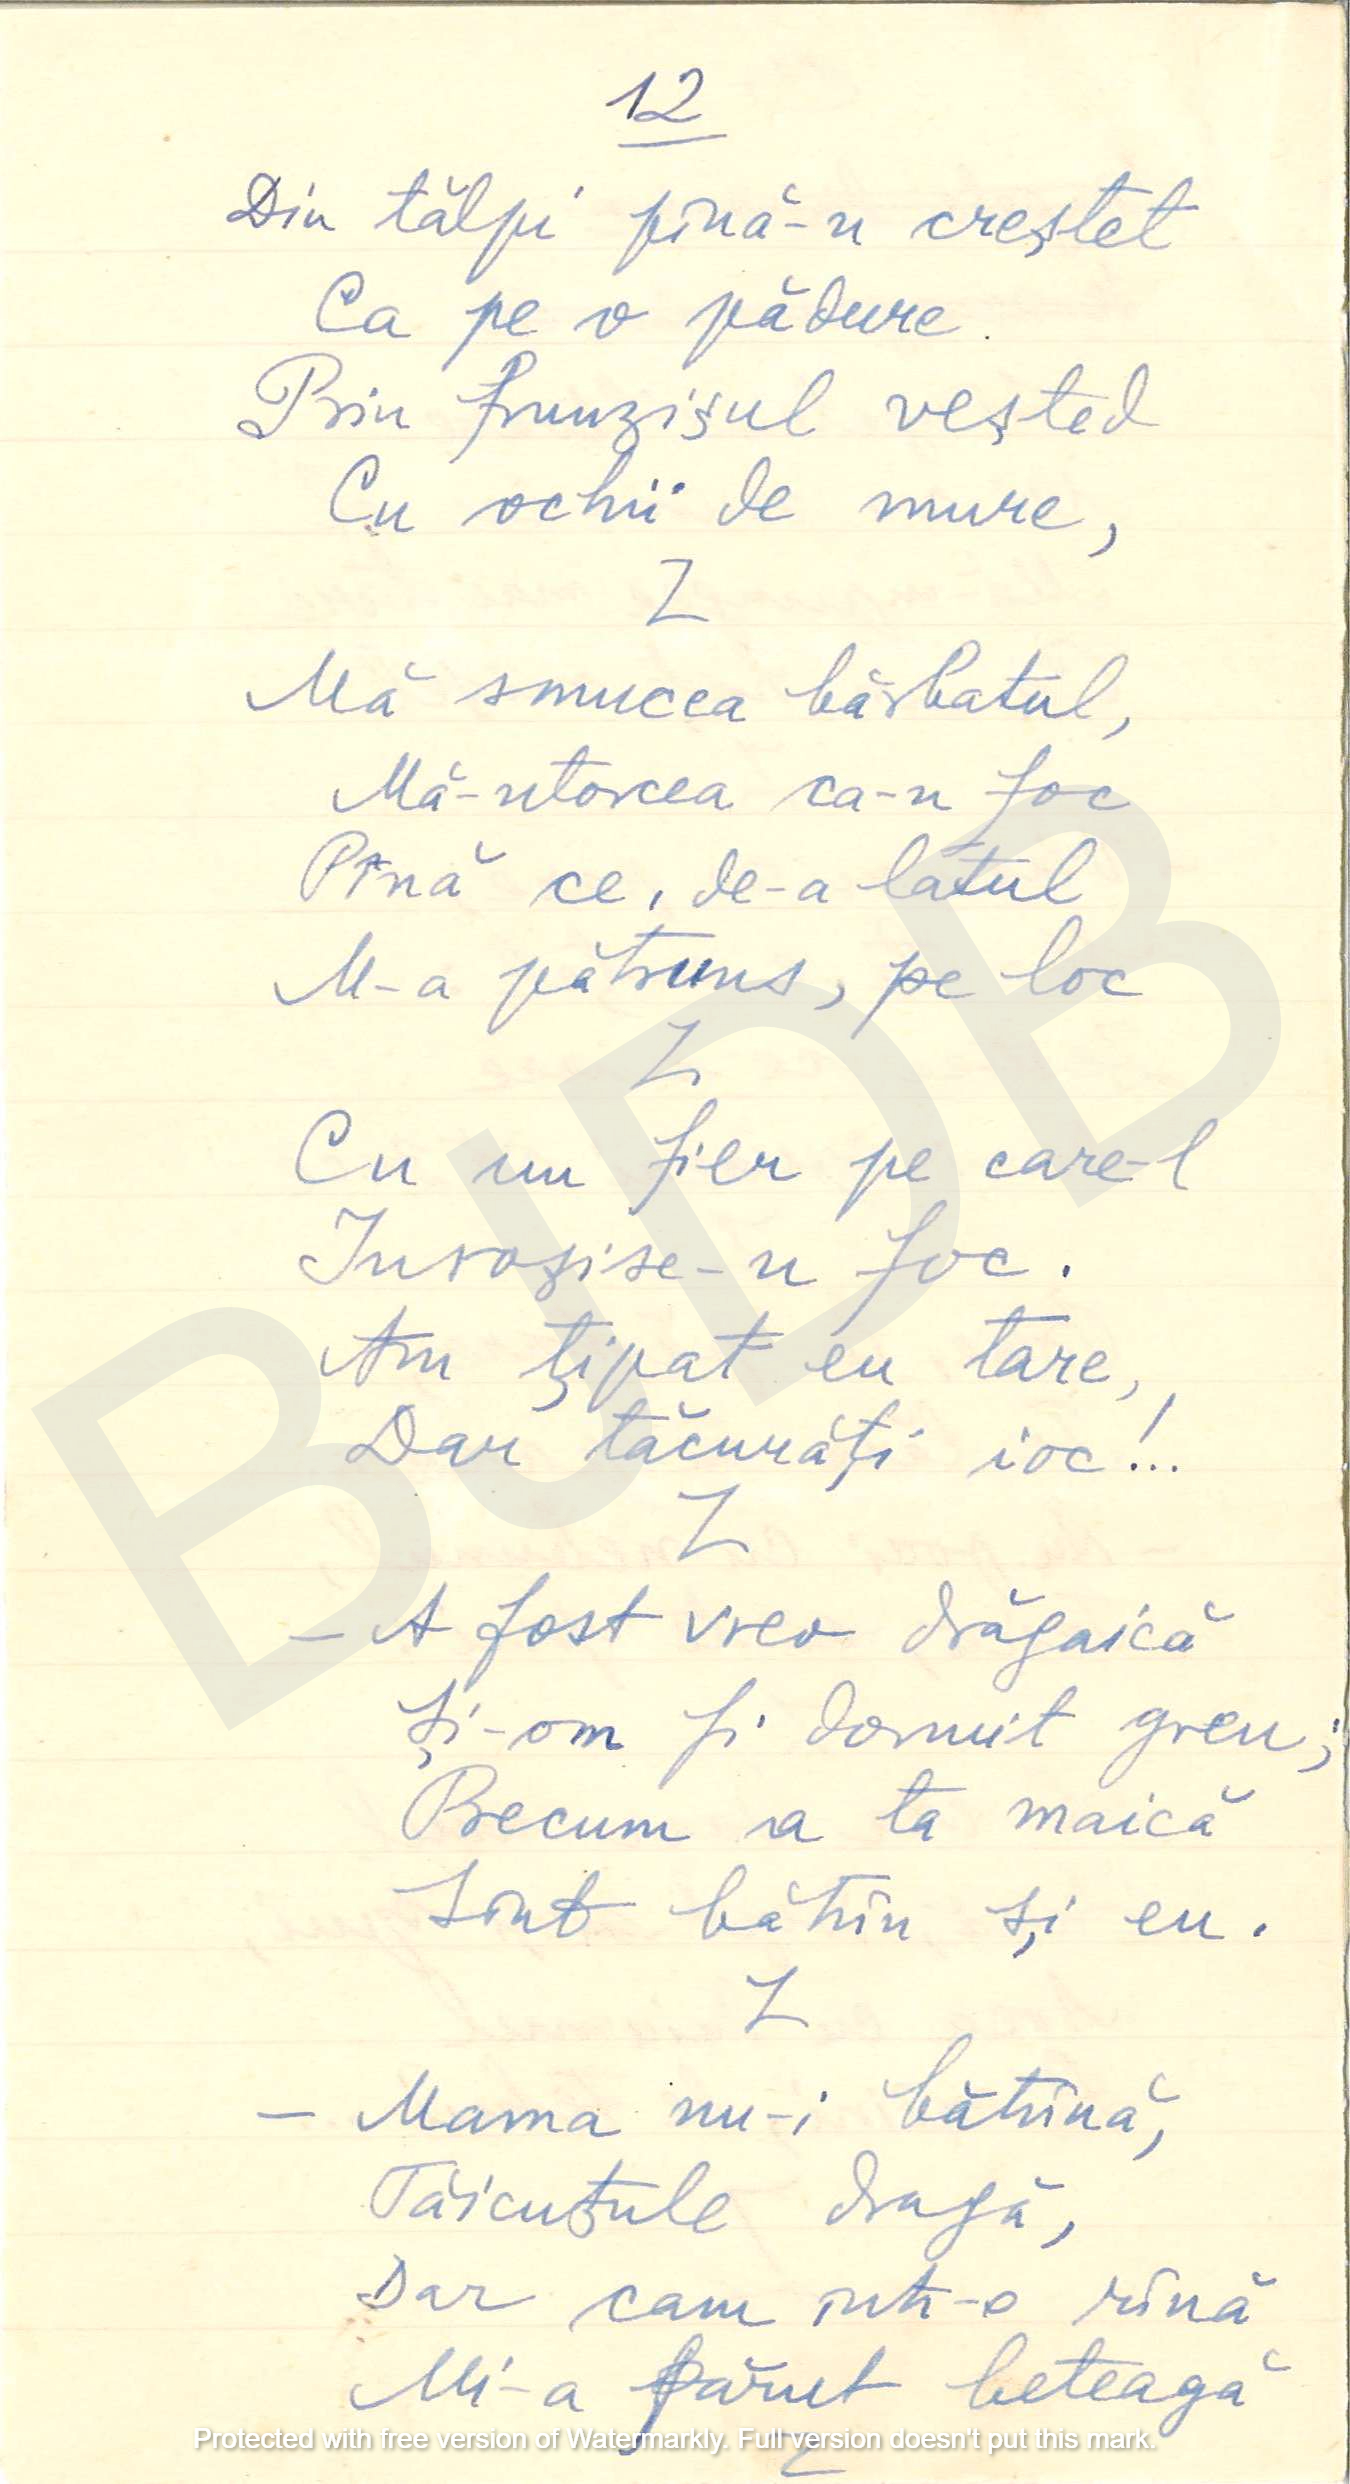 12
Din tălpi pînă-n creștet
Ca pe o pădure
Prin frunzișul veșted
Cu ochii de mure,
Z
Mă smucea bărbatul,
Mă-ntorcea ca-n joc
Pînă ce, de-a latul
M-a pătruns, pe loc
Z
Cu un fier pe care-l
Inroșise-n foc.
Am țipat eu tare,
Dar tăcurăți ioc!...
Z
- A fost vreo drăgaică
Și-om fi dormit greu;
Precum a ta maică
Sînt bătrîn și eu.
Z
- Mama nu-i bătrînă,
Tăicuțule dragă,
Dar cam intr-o rînă
Mi-a părut beteagă
Z
BJDB
Protected with free version of Watermarkly. Full version doesn't put this mark.